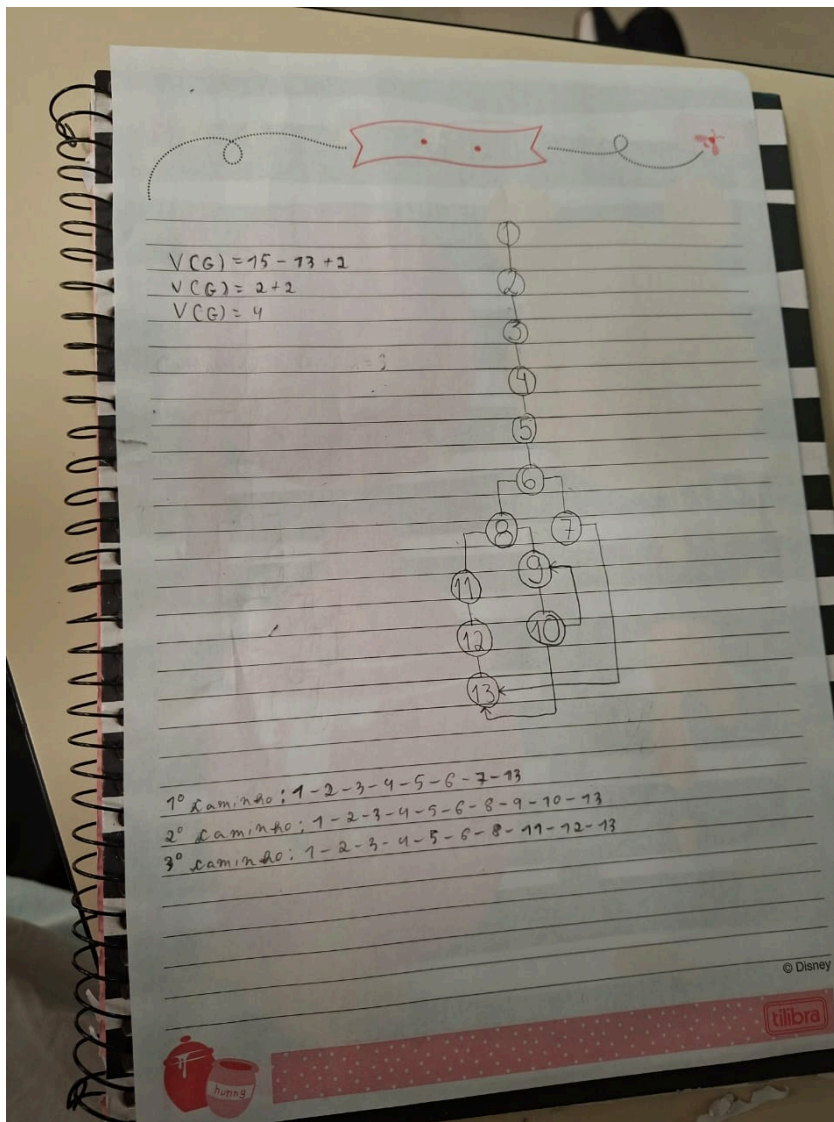 V(G) = 15 - 13 + 2
V(G) = 2 + 2
V(G) = 4
1
2
3
4
5
6
8 7
9
11
10
12
13
1º caminho: 1-2-3-4-5-6-7-13
2º caminho: 1-2-3-4-5-6-8-9-10-13
3º caminho: 1-2-3-4-5-6-8-11-12-13
© Disney
tilibra
hunny